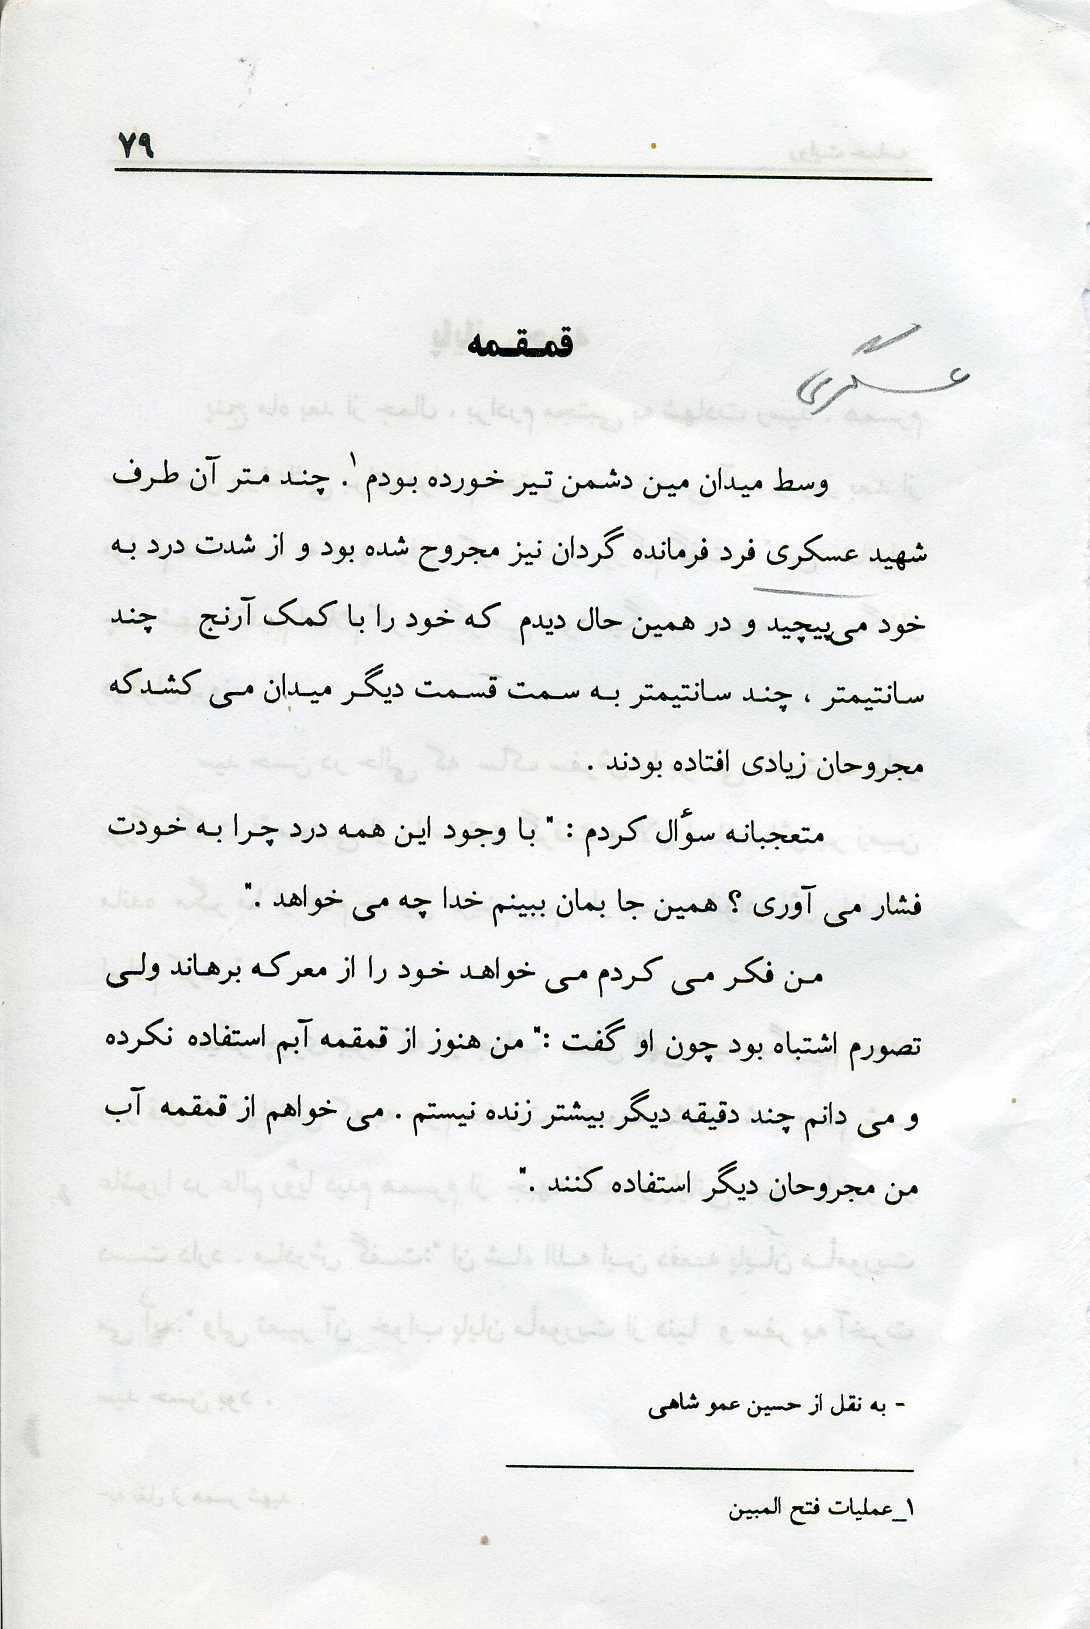 ۷۹
قمقمه
عسکری
وسط میدان مین دشمن تیر خورده بودم ۱. چند متر آن طرف
شهید عسکری فرد فرمانده گردان نیز مجروح شده بود و از شدت درد به
خود می‌پیچید و در همین حال دیدم که خود را با کمک آرنج چند
سانتیمتر ، چند سانتیمتر به سمت قسمت دیگر میدان می کشدکه
مجروحان زیادی افتاده بودند .
متعجبانه سؤال کردم : " با وجود این همه درد چرا به خودت
فشار می آوری ؟ همین جا بمان ببینم خدا چه می خواهد ."
من فکر می کردم می خواهد خود را از معرکه برهاند ولی
تصورم اشتباه بود چون او گفت :" من هنوز از قمقمه آبم استفاده نکرده
و می دانم چند دقیقه دیگر بیشتر زنده نیستم . می خواهم از قمقمه آب
من مجروحان دیگر استفاده کنند ."
- به نقل از حسین عمو شاهی
۱_عملیات فتح المبین